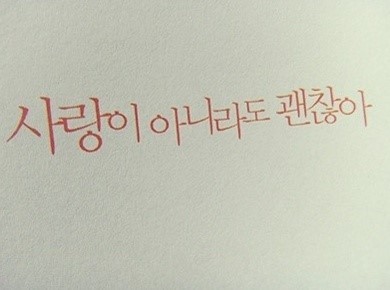 사랑이 아니라도 괜찮아